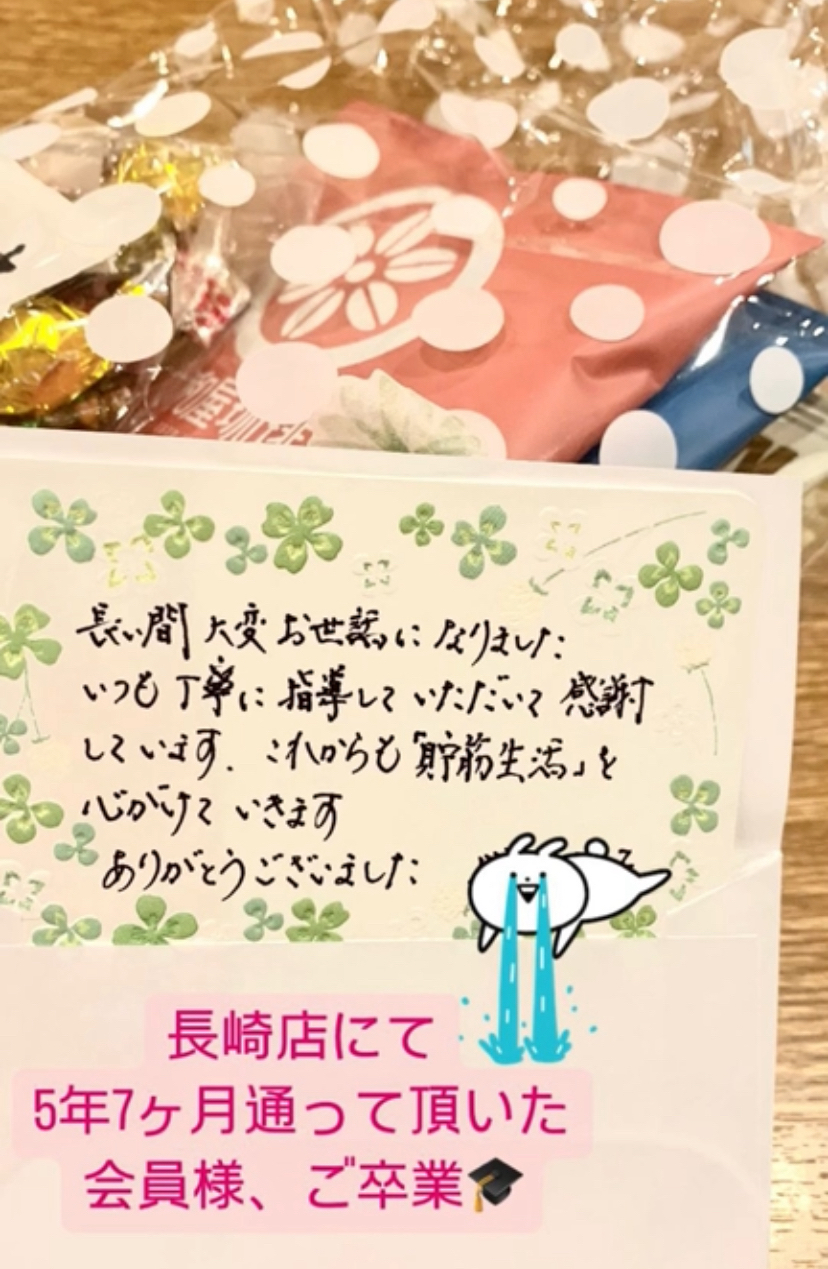 長い間 大変お世話に なりました
いつも 丁寧に 指導して いただいて 感謝
しています. これからも「貯筋生活」を
心がけて いきます
ありがとうございました
長崎店にて
5年7ヶ月通って頂いた
会員様、ご卒業🎓